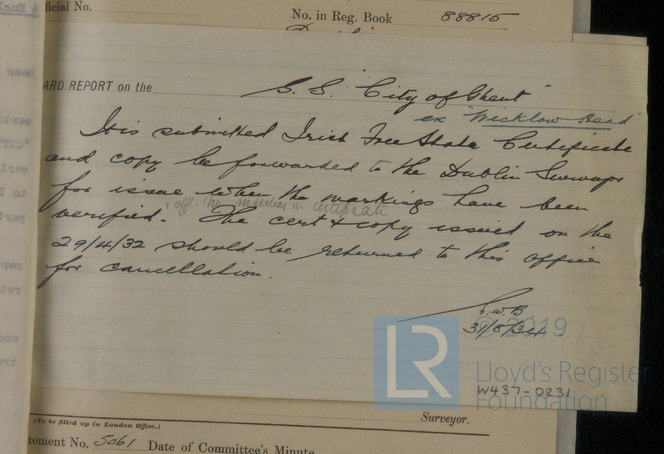 ficial No.
No. in Reg. Book 88815
ARD REPORT on the S.S. "City of Ghent"
ex "Wicklow Head"
It is submitted Irish Free State Certificate
and copy be forwarded to the Dublin Surveyor
for issue when the markings have been
+ offl. No. inserted in certificate
verified. The cert & copy issued on the
29/4/32 should be returned to this office
for cancellation.
31/8/34
© 2019
LR
Lloyd's Register
Foundation
W437-0231
(To be filled up in London Office.)
Surveyor.
tement No. 5061 Date of Committee's Minute